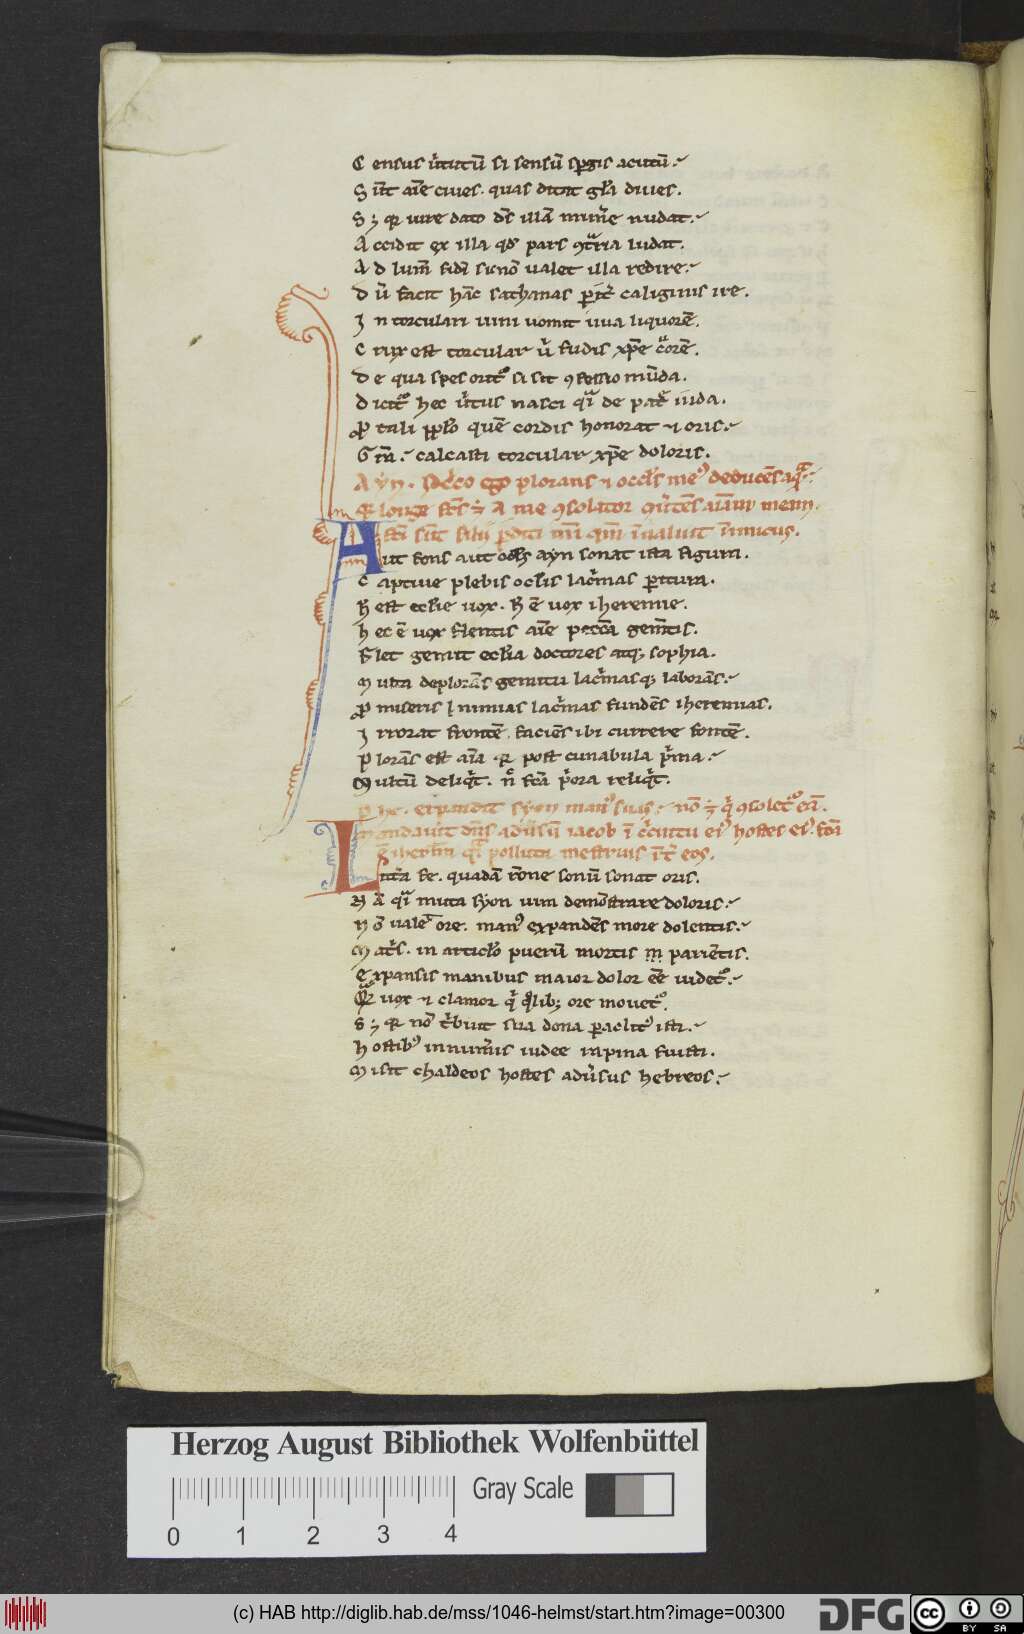 C ensus v̾tutū si sensū sp̱gis acutū.
S ūt aīe ciues. quas ditat gl̄a diues.
S ꝫ qr iure dato dr̄s illā mun̄e nudat.
A ccidit ex illa qd̓ pars ꝯt̾ria ludat.
A d lum̄ fidī si nō ualet illa redire.
D ū facit hāc sathanas caliginis ire.
I n torculari uini uomit uua liquorē.
C rux est torcular ū̓ fudis xp̄e c̾orē.
D e qua spes orit᷒ si sit ꝯfessio mūda.
D icit᷒ hec v̾tus nasci q̾ de pat̾ iuda.
ꝓ tali pp̄lo quē cordis honorat ⁊ oris.
Gm̄. calcasti torcular xp̄e doloris.
Ayn. ego plorans ⁊ ocl̄s me᷒ deducēs aq̄s.
qr longe fcs̄ ē A me ꝯsolator ꝯu̓tēs aīam meam.
fcī sūt filii ꝑditi mī qm̄ īualuit inimicus.
Aut fons aut ocl̄s ayn sonat ista figura.
C aptiue plebis ocl̄is lac̾mas ꝑitura.
H̄ est eccl̄ie uox. H̄ ē uox iheremie.
h ec ē uox flentis aīe pecc̄a gem̄tis.
F let gemit eccl̄ia doctores atqꝫ sophia.
M ulta deplorās gemitu lac̾masqꝫ laborās.
ꝓ miseris lac̾mas fundēs iheremias.
I rrorat frontē. faciēs ibi currere fontē.
P lorās est aīa. qr post cunabula p̾ma.
M ultū deliq̓t. n̄ fc̄a p̓ora reliq̓t.
P he. expandit syon man᷒ suas. nō ē q̓ ꝯsolet᷒ eā.
Mandauit dn̄s aduersū iacob ī c̾cuitu ei᷒ hostes ei᷒ fc̄a
ē iherl̄m q̄i polluta mestruis īt̾ eos.
Litt̾a fe. quadā rōne sonū sonat oris.
N ā q̾ muta syon uim demōstrare doloris.
N ō ualet ore. man᷒ expandēs more dolentis.
M at̾s. in articl̄o puerū mortis pariētis.
Expansis manibus maior dolor eē uidet᷒.
Qr uox ⁊ clamor q̓ qͦlibꝫ ore mouet᷒.
S ꝫ qr nō t̾buit sua dona isti.
H ostib᷒ innum̄is iudee rapina fuisti.
M isit chaldeos hostes adu̓sus hebreos.
Herzog August Bibliothek Wolfenbüttel
Gray Scale
0 1 2 3 4
(c) HAB http://diglib.hab.de/mss/1046-helmst/start.htm?image=00300
DFG cc BY SA